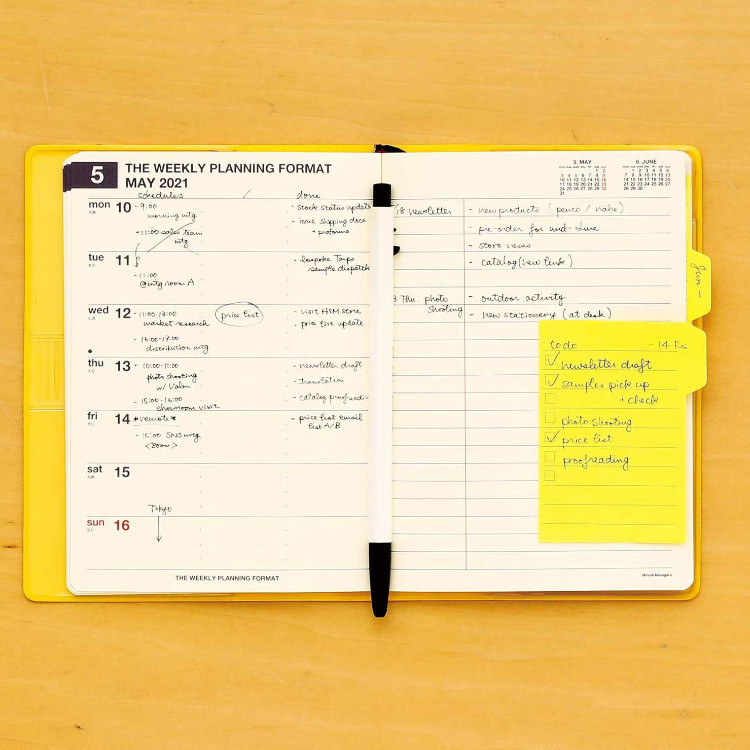 5
THE WEEKLY PLANNING FORMAT
MAY 2021
schedules
done
mon 10
- 9:00
morning mtg
- 11:00 sales team
mtg
- stock status update
- issue shipping docs
+ proforma
tue 11
- 11:00
@mtg room A
- bespoke
sample dispatch
wed 12
- 11:00-13:00
market research
- 16:00-17:00
distribution mtg
price list
- visit H&M store
- price list update
thu 13
- 10:00-11:00
photo shooting
w/
- 15:00-16:00
showroom visit
- newsletter draft
- translation
- catalog proofreadin
fri 14
*remote*
- 15:00 SNS mtg
<zoom>
- price list email
list A/B
sat 15
sun 16
Tokyo
THE WEEKLY PLANNING FORMAT
5. MAY
6. JUNE
/18 newsletter
- new products (penco / nähe)
- pre-order for mid-June
- store news
- catalog (new link)
Thu. photo
shooting
- outdoor activity
- new stationery (at desk)
Jun -
to do
- 14 Fri
newsletter draft
samples pick up
+ check
photo shooting
price list
proofreading